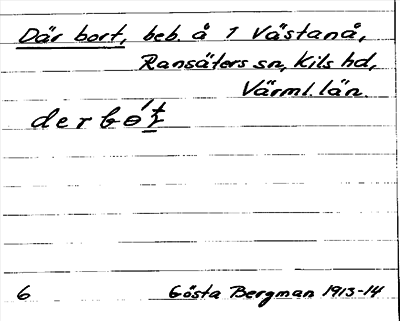 Där bort, beb. å 1 Västanå,
Ransäters sn, Kils hd,
Värml. län.
6 Gösta Bergman 1913-14